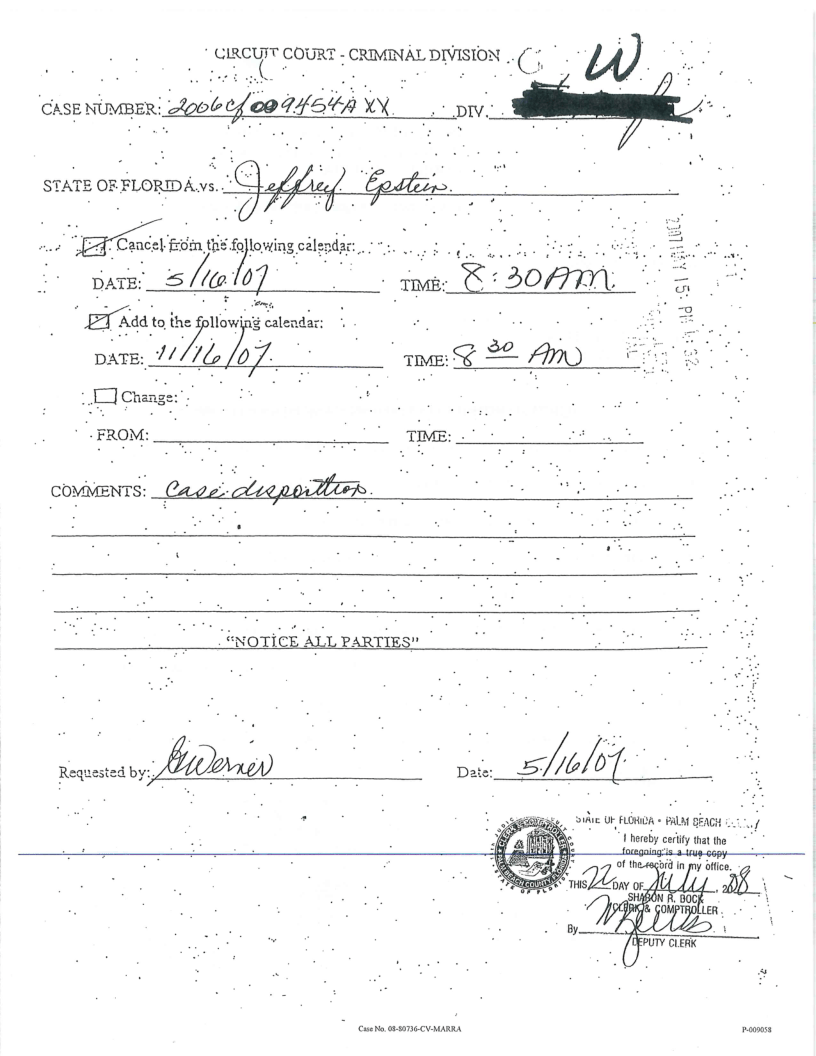 CIRCUIT COURT - CRIMINAL DIVISION
W
CASE NUMBER: 2006cf009454AXX DIV.
STATE OF FLORIDA vs. Jeffrey Epstein
Cancel from the following calendar:
DATE: 5/16/07 TIME: 8:30 AM
Add to the following calendar:
DATE: 11/16/07 TIME: 8 30 AM
Change:
FROM: TIME:
COMMENTS: Case disposition
"NOTICE ALL PARTIES"
Requested by: Date: 5/16/07
STATE OF FLORIDA • PALM BEACH
I hereby certify that the
foregoing is a true copy
of the record in my office.
THIS 22 DAY OF July, 2008
SHARON R. BOCK
CLERK & COMPTROLLER
By
DEPUTY CLERK
Case No. 08-80736-CV-MARRA P-009058